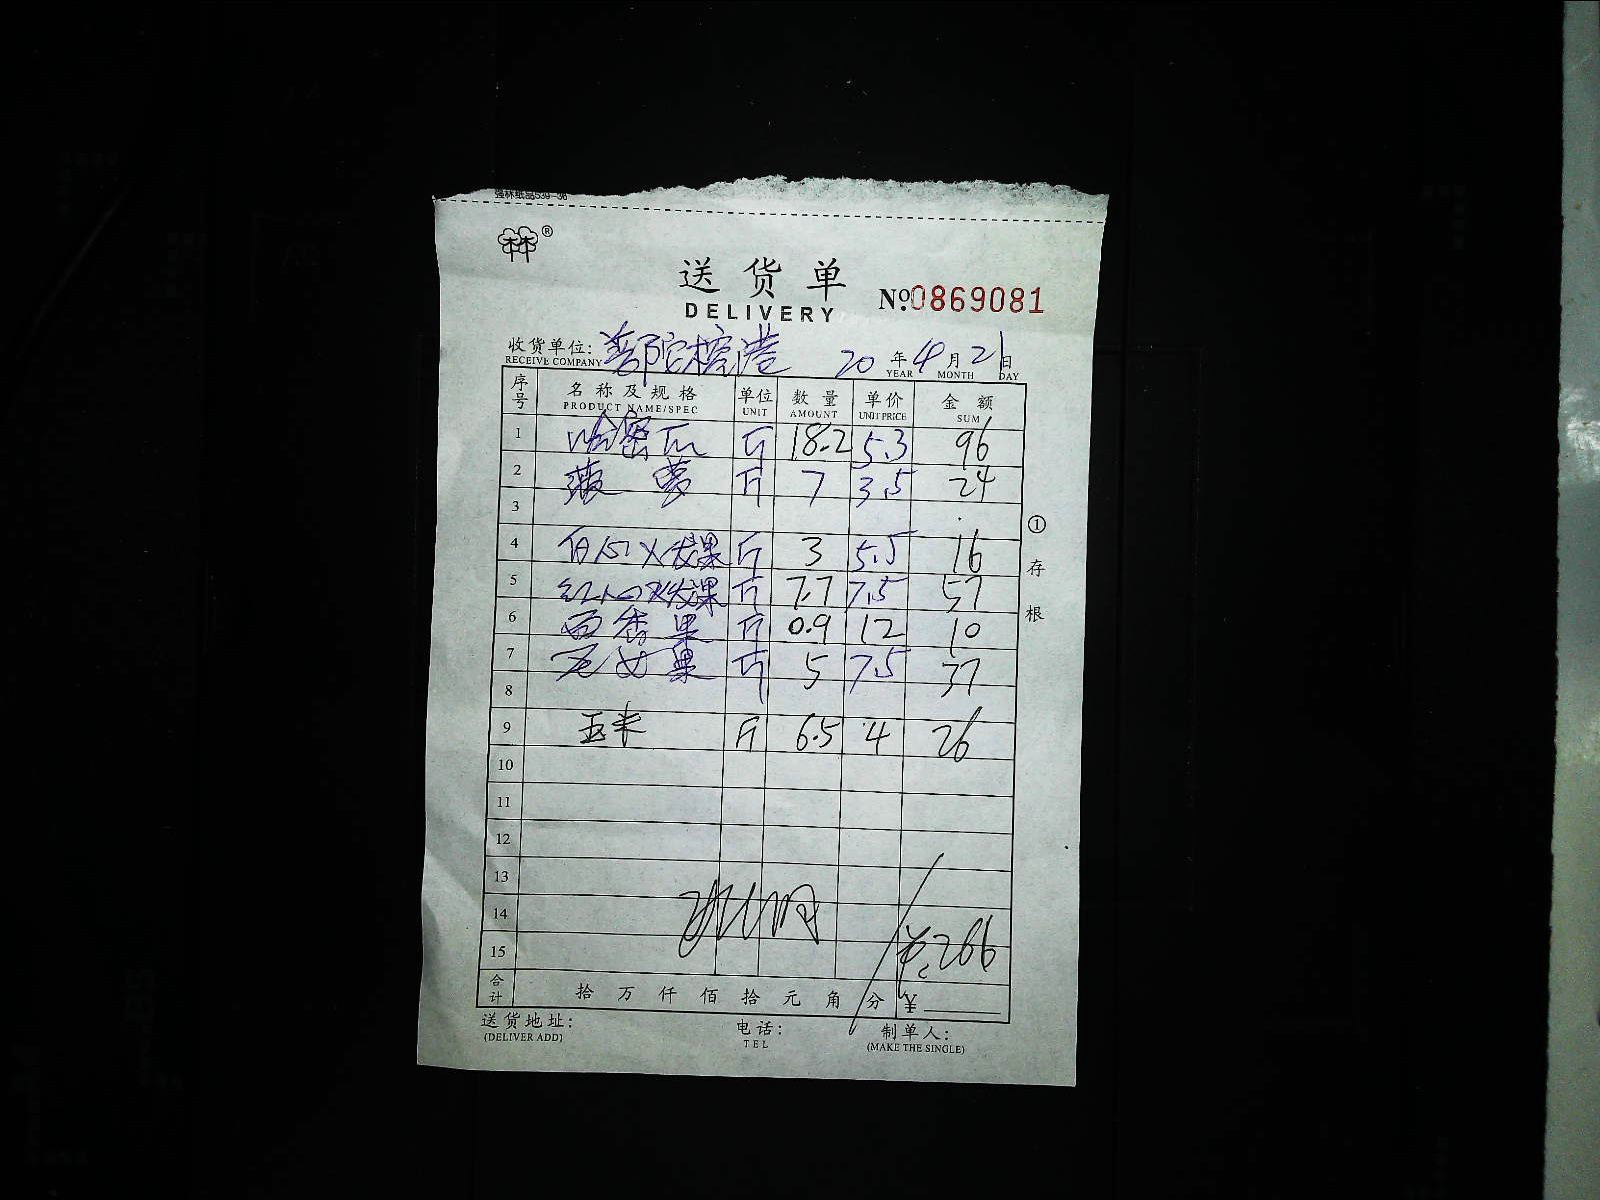 强林纸品539-36
林林®
送货单
DELIVERY
№0869081
收货单位: 普陀 港 20 年 4 月 21 日
RECEIVE COMPANY YEAR MONTH DAY
序号 名称及规格 单位 数量 单价 金额
PRODUCT NAME/SPEC UNIT AMOUNT UNIT PRICE SUM
1 哈密瓜 斤 18.2 5.3 96
2 菠萝 斤 7 3.5 24
3
4 白心火龙果 斤 3 5.5 16
5 红心火龙果 斤 7.7 7.5 57
6 百香果 斤 0.9 12 10
7 果 斤 5 7.5 37
8
9 玉米 斤 6.5 4 26
10
11
12
13
14
15 ¥:266
合计 拾 万 仟 佰 拾 元 角 分 ¥
送货地址: 电话: 制单人:
(DELIVER ADD) TEL (MAKE THE SINGLE)
① 存根